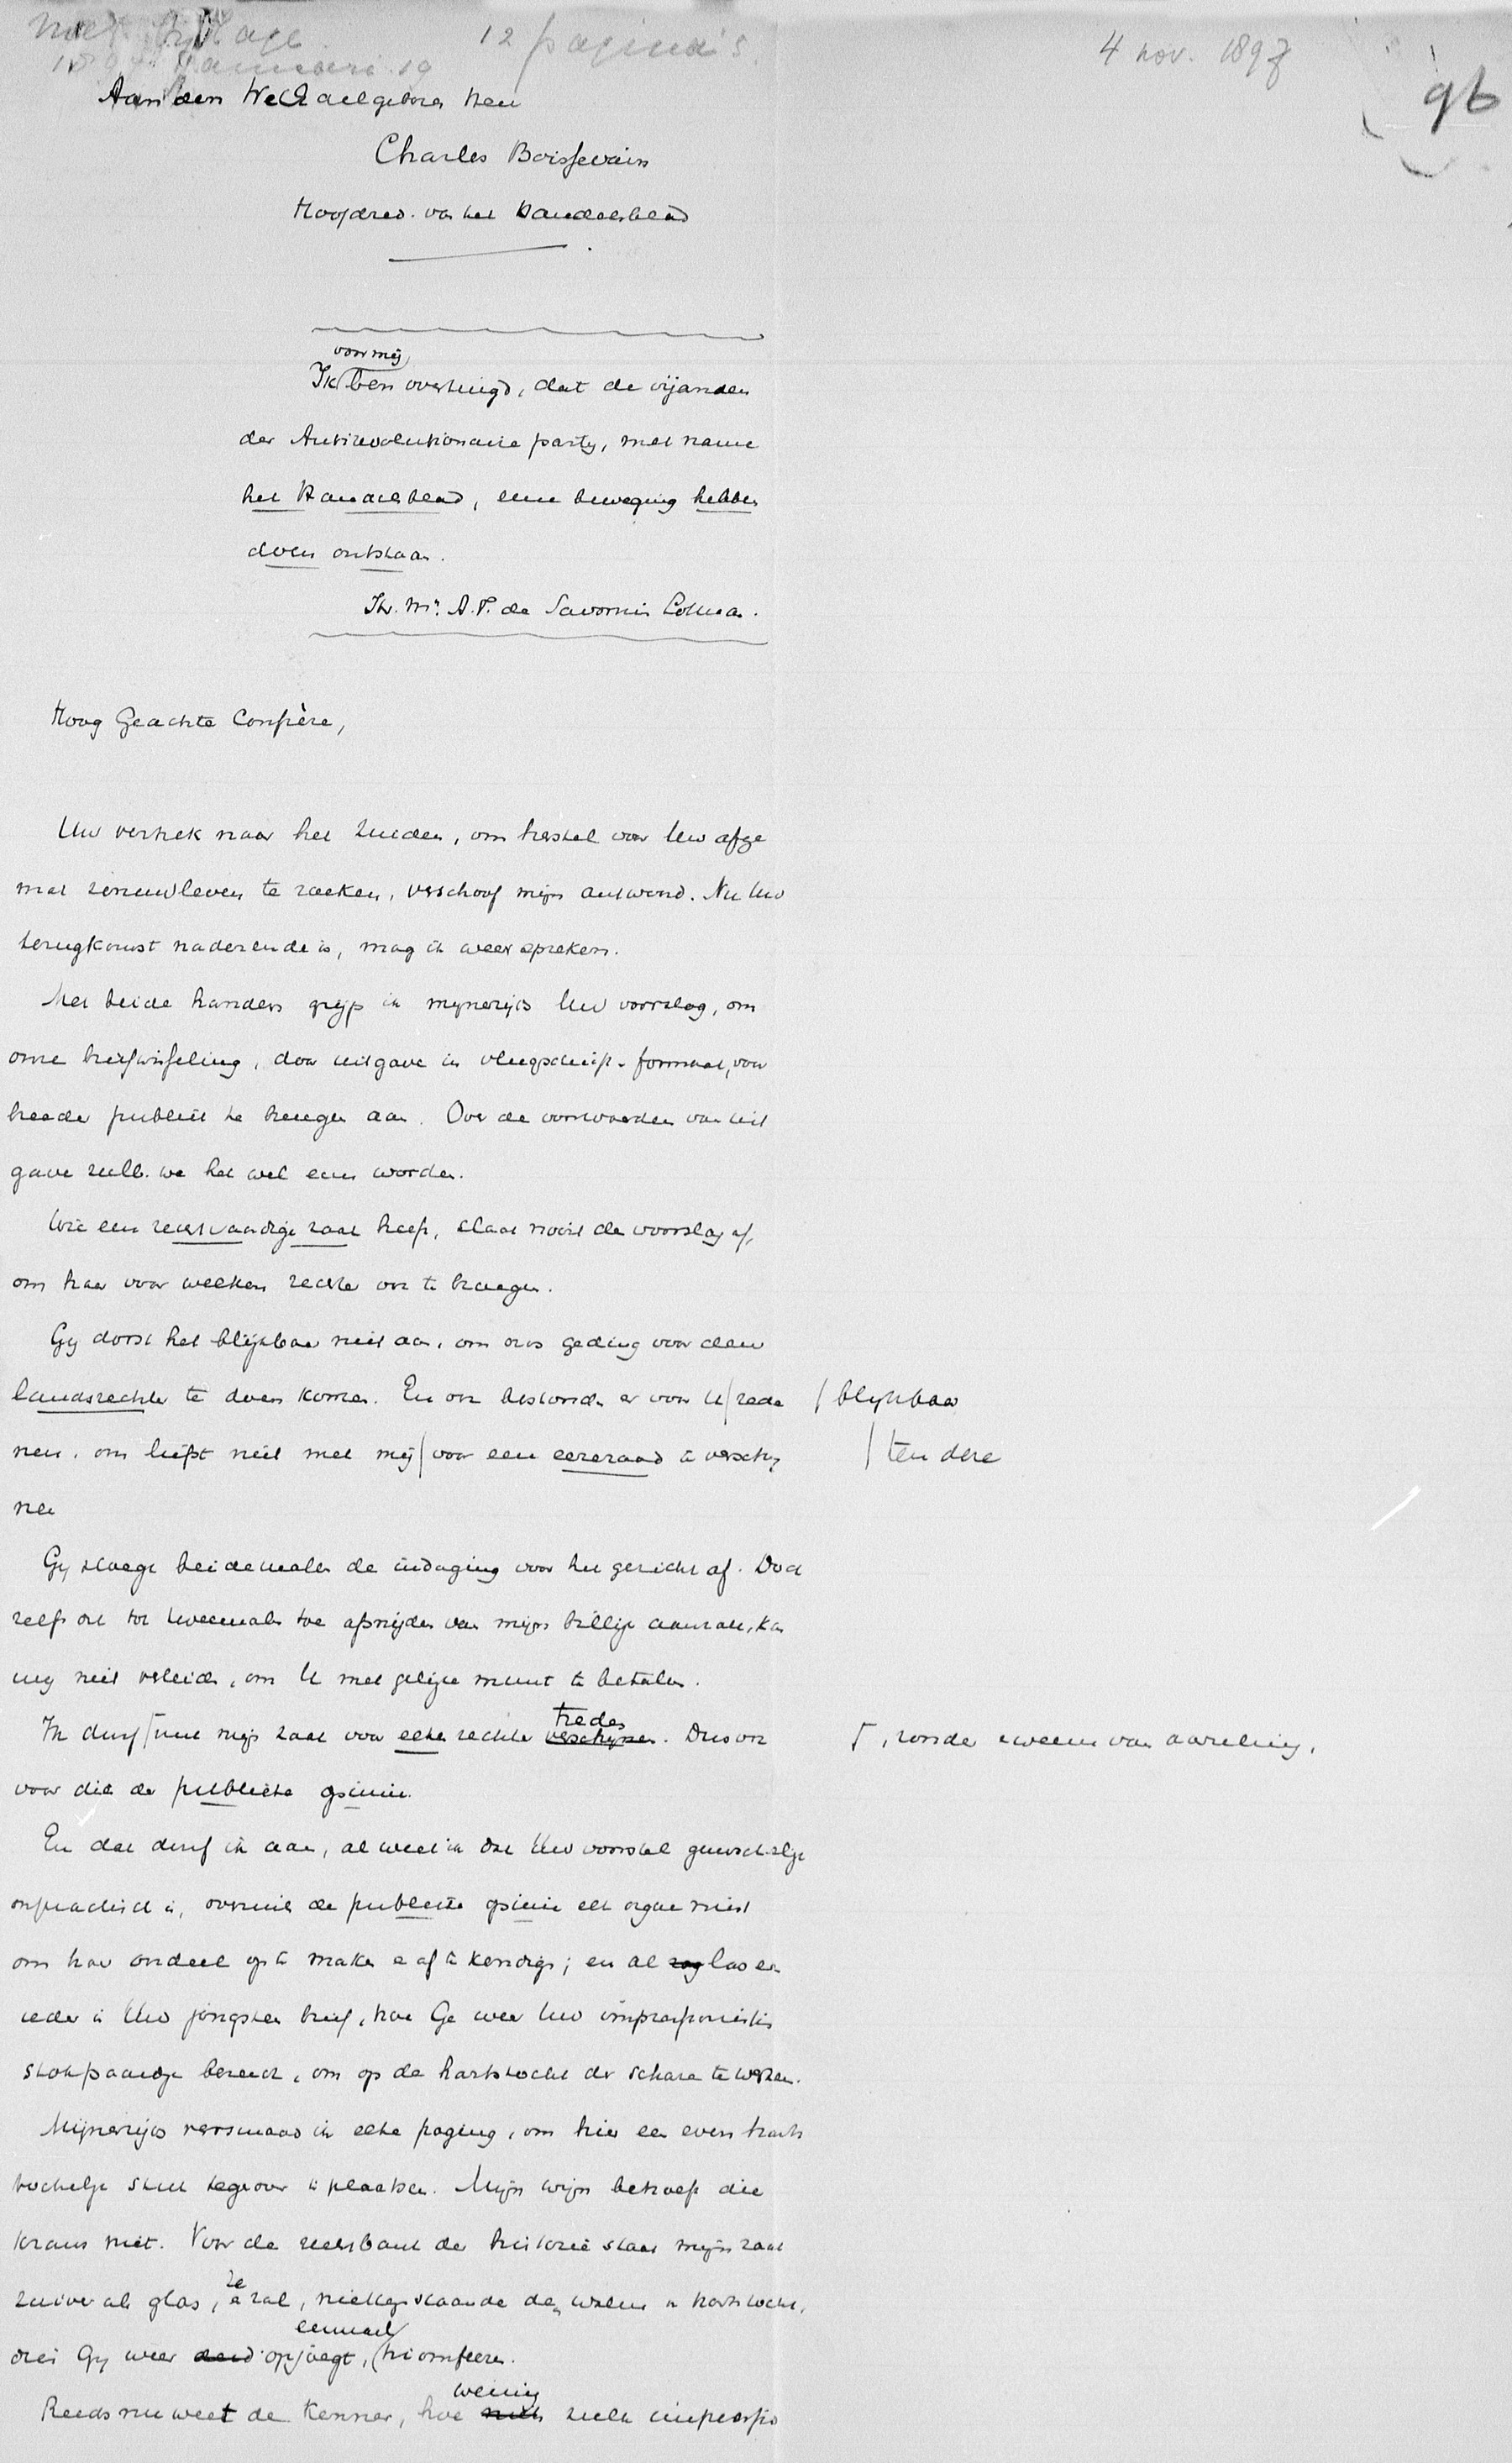 12 pagina's
4 nov. 1897
96
Aan den WelEdelgeboren Heer
Charles Boissevain
Hoofdred. van het Handelsblad
voor mij
Ik ben overtuigd, dat de vijanden
der Antirevolutionaire party, met name
het Handelsblad, eene beweging hebben
doen ontstaan.
Jhr. Mr. A.F. de Savornin Lohman.
Hoog Geachte Confrère,
Uw vertrek naar het Zuiden, om herstel voor Uw afge
mat zenuwleven te zoeken, verschoof mijn antwoord. Nu Uw
terugkomst naderende is, mag ik weer spreken.
Met beide handen grijp ik mijnerzijds Uw voorslag, om
onze briefwisseling, door uitgave in vlugschrift-formaat, voor
breeder publiek te brengen aan. Over de voorwaarden van uit
gave zullen we het wel eens worden.
Wie een rechtvaardige zaak heeft, slaat nooit de voorslag af,
om haar voor welken rechter ook te brengen.
Gij dorst het blijkbaar niet aan, om ons geding voor den
landsrechter te doen komen. En ook bestonden er voor U / rede / blijkbaar
nen, om liefst niet met mij / voor een eereraad te verschij / ten dere
nen
Gij sloegt beidemalen de indaging voor het gericht af. Doch
zelfs dit tot tweemalen toe afsnijden van mijn billijk aanzoek, kan
mij niet verleiden, om U met gelijke munt te betalen.
Ik durf / met mijn zaak voor elken rechter verschijnen treden. Dus ook , zonder zweem van aarzeling,
voor die der publieke opinie.
En dat durf ik aan, al weet ik dat Uw voorstel gemoedelijk
onpractisch is, overmits de publieke opinie elk orgaan mist
om haar oordeel op te maken en af te kondigen; en al zag las een
ieder in Uw jongsten brief, hoe Ge weer Uw impressionistisch
stokpaardje bereedt, om op de hartstocht der schare te werken.
Mijnerzijds versmaad ik elke poging, om hier een even harts
tochtelijk stuk tegenover te plaatsen. Mijn wijn behoeft die
krans niet. Voor de rechtbank der historie staat mijn zaak
zuiver als glas, en ze zal, niettegenstaande den walm van hartstocht,
dien Gij weer deed opjoegt, eenmaal triomfeeren.
Reeds nu weet de kenner, hoe weinig zulk impressio